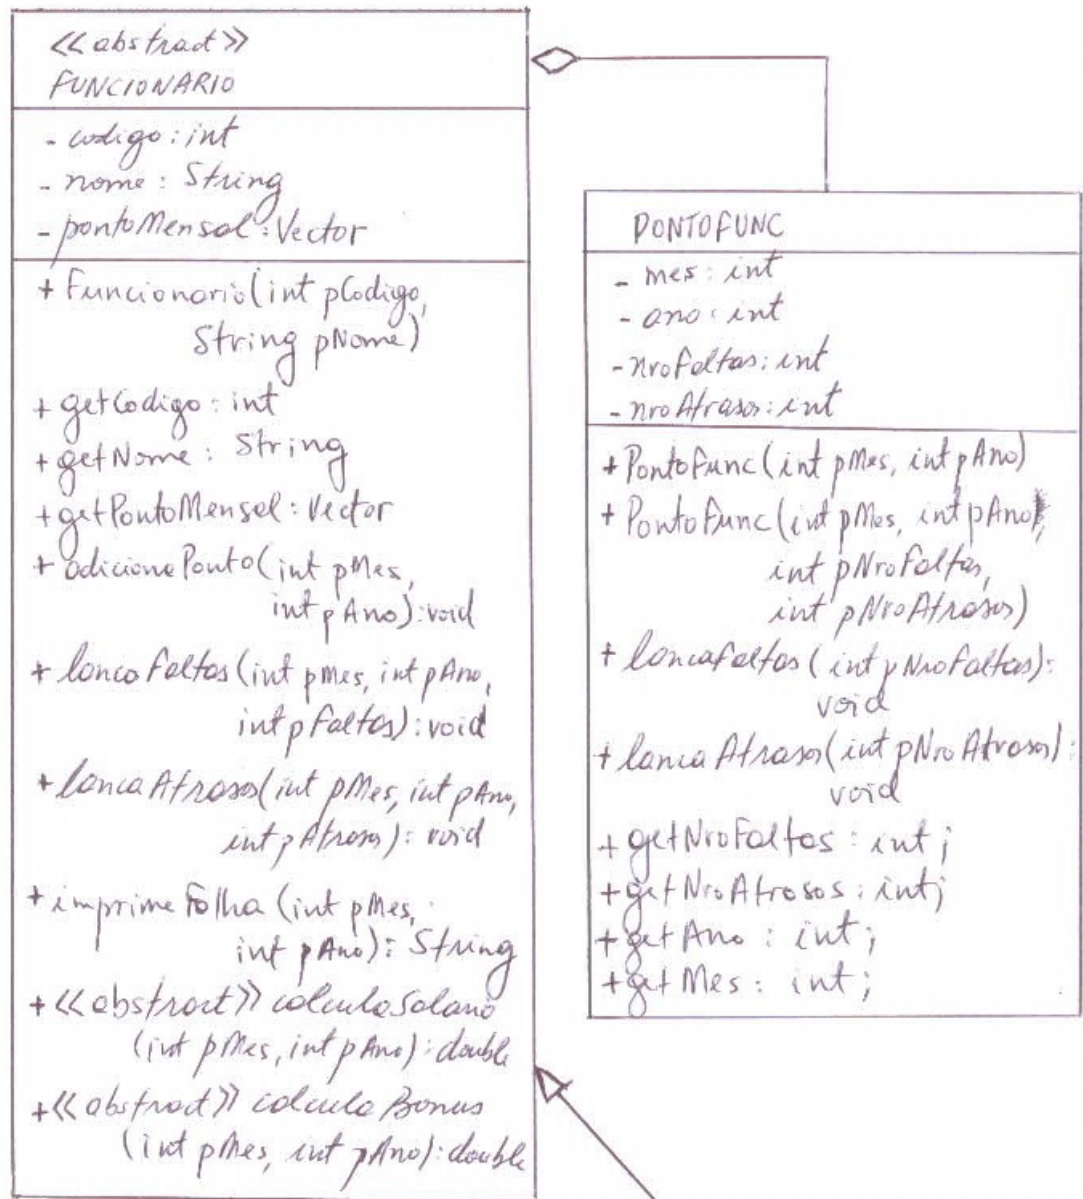 <<abstract>>
FUNCIONARIO
- codigo: int
- nome: String
- pontoMensal: Vector
+ Funcionario(int pCodigo,
String pNome)
+ getCodigo: int
+ getNome: String
+ getPontoMensal: Vector
+ adicionaPonto(int pMes,
int pAno): void
+ lancaFaltas(int pMes, int pAno,
int pFaltas): void
+ lancaAtrasos(int pMes, int pAno,
int pAtrasos): void
+ imprimeFolha (int pMes,
int pAno): String
+ <<abstract>> calculaSalario
(int pMes, int pAno): double
+ <<abstract>> calculaBonus
(int pMes, int pAno): double
PONTOFUNC
- mes: int
- ano: int
- nroFaltas: int
- nroAtrasos: int
+ PontoFunc(int pMes, int pAno)
+ PontoFunc(int pMes, int pAno,
int pNroFaltas,
int pNroAtrasos)
+ lancaFaltas (int pNroFaltas):
void
+ lancaAtrasos(int pNroAtrasos):
void
+ getNroFaltas: int;
+ getNroAtrasos: int;
+ getAno: int;
+ getMes: int;